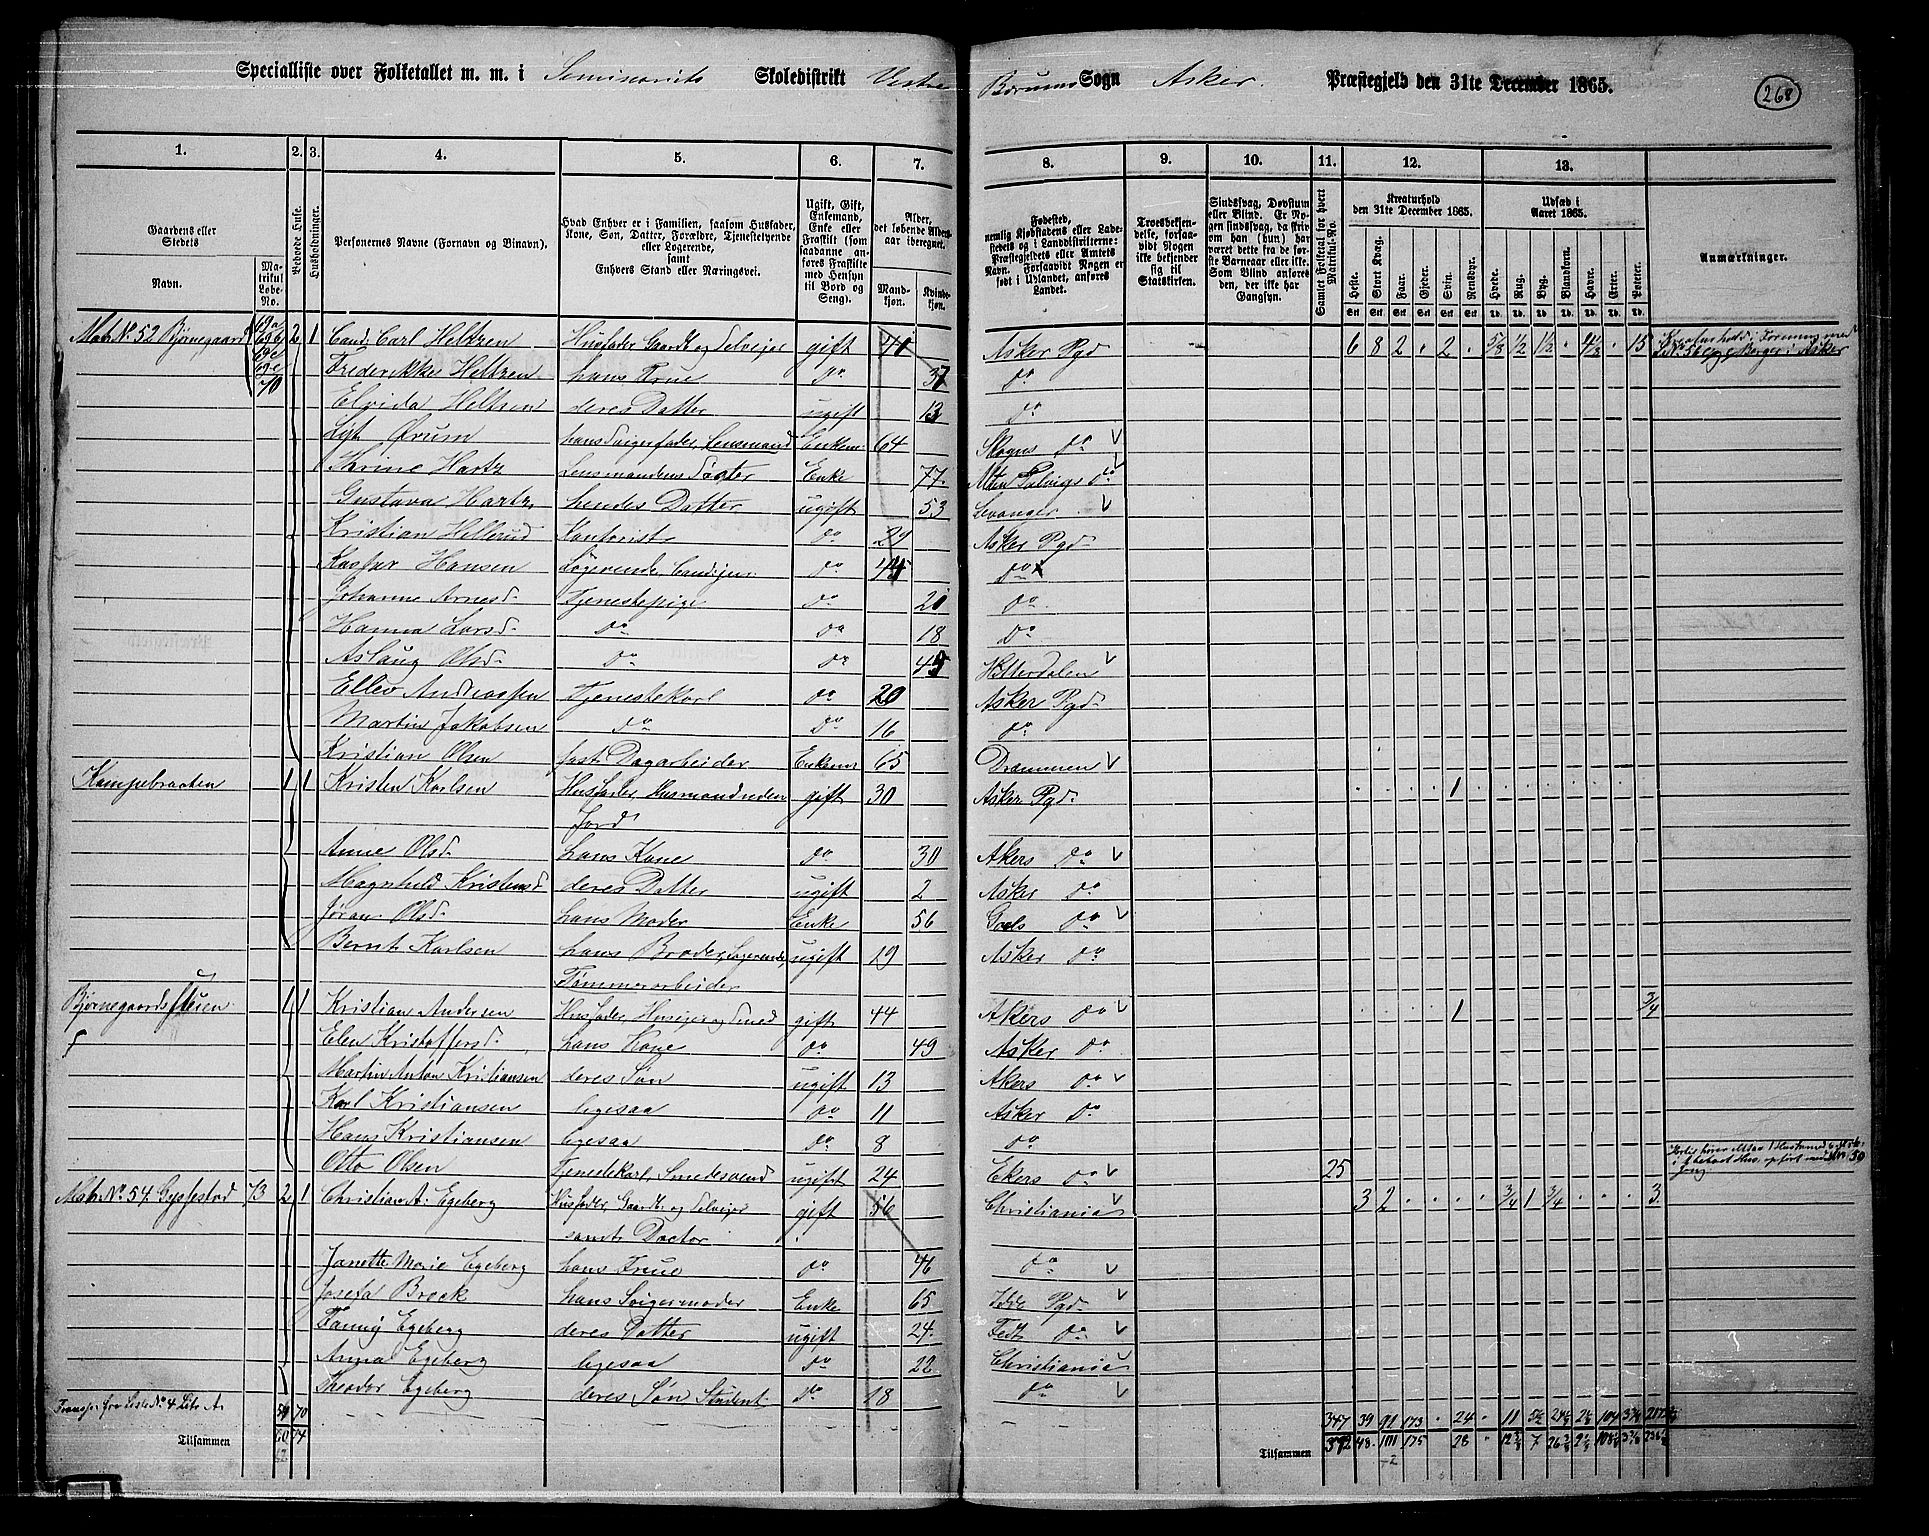 Specialliste over Folketallet m. m. i Seminariets Skoledistrikt Vestre Bærums Sogn Asker Præstegjeld den 31te December 1865.
268
1. 2. 3. 4. 5. 6. 7. 8. 9. 10. 11. 12. 13.
Gaardens eller Stedets Navn. Matrikul Løbe-No.
Beboede Huse.
Husholdninger.
Personernes Navne (Fornavn og Binavn).
Hvad Enhver er i Familien, saasom Husfader, Kone, Søn, Datter, Forældre, Tjenestetyende eller Logerende, samt Enhvers Stand eller Næringsvei.
Ugift, Gift, Enkemand, Enke eller Fraskilt (som saadanne anføres Fraskilte med Hensyn til Bord og Seng).
Alder, det løbende Aldersaar iberegnet. Mandkjøn. Kvindekjøn.
Fødested, nemlig Kjøbstadens eller Ladestedets og i Landdistrikterne: Præstegjeldets eller Amtets Navn. Forsaavidt Nogen er født i Udlandet, anføres Landet.
Troesbekjendelse, forsaavidt Nogen ikke bekjender sig til Statskirken.
Sindssvag, Døvstum eller Blind. Er Nogen sindssvag, da skrives om han (hun) har været dette fra de første Barneaar eller ikke. Som Blind anføres den, der ikke har Gangsyn.
Samlet Folketal for hvert Matrikul-No.
Kreaturhold den 31te December 1865. Heste. Stort Kvæg. Faar. Gjeder. Svin. Rensdyr.
Udsæd i Aaret 1865. Hvede. Rug. Byg. Blandkorn. Havre. Erter. Poteter.
Anmærkninger.
Matr No 52 Bjørnegaard 2 1 Cand. Carl Heltzen Husfader, Gaardbr. og Selveier gift Asker Pgd 6 8 2 . 2 . 5/8 1/2 1 1/2 . 4 1/2 . 15
70 Frederikke Heltzen hans Frue do 37 do
Elvida Heltzen deres Datter ugift 13 do
Ørum hans Svigerfader, Lensmand Enkem 64 Skogns do
Karine Hartz Lensmandens Søster Enke 77
Gustava Hartz hendes Datter ugift 53 Levanger
Kristian Hellerud Kontorist do 29 Asker Pgd
Kaspar Hansen Logerende, do 45 do
Johanne Arnesd. Tjenestepige do do
Hanna Larsd. do do 18 do
Aslaug Olsd. do do 45 Hitterdalen
Ellev Andreassen Tjenestekarl do 20 Asker Pgd.
Martin Jakobsen do do 16 do
Kristian Olsen fast Dagarbeider Enkem 65 Drammen
Kampebraaten 1 1 Kristen Karlsen Husfader, Husmand uden Jord gift 30 Asker Pgd. 1
Anne Olsd. hans Kone do 30 Akers do
Magnhild Kristensd deres Datter ugift 2 Asker do
Jøran Olsd. hans Moder Enke 56 Gols do
Bernt Karlsen hans Broder, Logerende, Tømmerarbeider ugift 19 Asker do
Bjørnegaardssveien 1 1 Kristian Andersen Husfader, Huseier og Smed gift 44 Akers do 1 3/4
Elen Kristoffersd. hans Kone do 49 Asker do
Martin Anton Kristiansen deres Søn ugift 13 Akers do
Karl Kristiansen ligesaa do 11 Asker do
Hans Kristiansen ligesaa do 8 do
Otto Olsen Tjenestekarl, Smedesvend ugift 24 Ekers do 25
Matr No 54 Gyssestad 73 2 1 Christian A. Egeberg Husfader, Gaardbr. og Selveier samt Doctor gift 56 Christiania 3 2 . . . . 3/4 1 3/4 . . . 3
Janette Marie Egeberg hans Frue do 46 do
Josefa Breek hans Svigermoder Enke 65 Idde Pgd.
Fanny Egeberg deres Datter ugift 24 do
Anna Egeberg ligesaa do 22 Christiania
Theodor Egeberg deres Søn Student do 18 do
Transp. fra Liste No 4 Litr A. 54 70 347 39 91 173 . 24 . 11
Tilsammen 74 Tilsammen 372 48 101 175 28 7